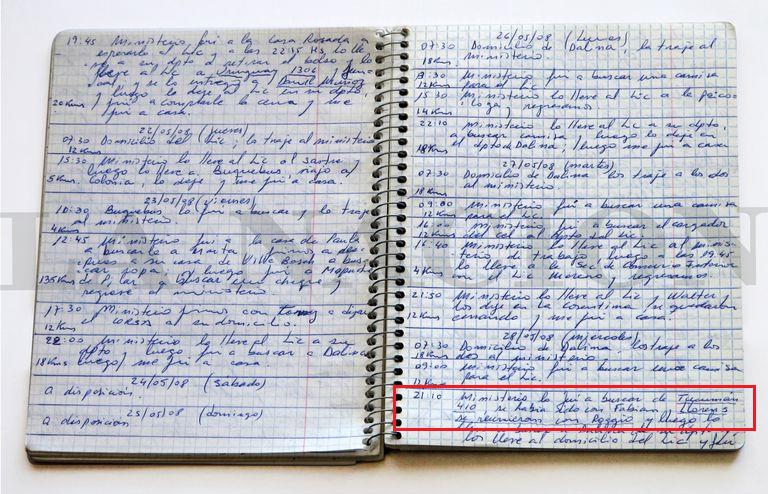 19:45 Ministerio fui a la Casa Rosada a
esperarlo al Lic y a las 22:15 Hs, lo lle
ve a su dpto a retirar el bolso y lo
lleve al Lic a Uruguay 1306 y
se lo entrego a Daniel Muñoz
y luego lo deje al Lic en su dpto,
20 Kms y fui a comprarle la cena y me
fui a casa.
22/05/08 (jueves)
07:30 Domicilio del Lic; lo traje al ministerio
12 Kms
15:30 Ministerio lo lleve al Lic al Sastre y
luego lo lleve a Buquebus viajo a
5 Kms Colonia, lo deje y me fui a casa.
23/05/08 (viernes)
10:30 Buquebus lo fui a buscar y lo traje
al ministerio.
4 Kms
12:45 Ministerio fui a la casa de Paula
a buscarlo a Martin fuimos a
su casa de Villa Bosch a bus
car ropa y luego fui a
de Pilar a buscar un cheque y
regrese al ministerio.
17:30 Ministerio fuimos con a dejar
el CORSA al su domicilio.
12 Kms
22:00 Ministerio lo lleve al Lic a su
dpto luego fui a buscar a Dalina
18 Kms luego me fui a casa.
24/05/08 (sabado)
a disposición
25/05/08 (domingo)
a disposición
26/05/08 (Lunes)
07:30 Domicilio de Dalina, lo traje al
18 Kms ministerio.
Ministerio fui a buscar una camisa
12 Kms para el Lic.
15:30 Ministerio lo lleve al Lic a la psico-
loga y regresamos
14 Kms
22:10 Ministerio lo lleve al Lic a su dpto,
a buscar camisa y luego lo deje en
18 Kms el dpto de Dalina, luego me fui a casa
27/05/08 (martes)
07:30 Domicilio de Dalina los traje a los dos
al ministerio.
18 Kms
09:00 Ministerio fui a buscar una camisa
12 Kms para el Lic.
16:00 Ministerio fui a buscar el cargador
12 Kms del cel al dpto del Lic
16:40 Ministerio lo lleve al Lic al minis-
terio de trabajo, luego a las 19:45
lo lleve a la Sec. de Comercio Interior
4 Kms con el Lic Moreno y regresamos.
21:50 Ministerio lo lleve al Lic y Walter
los deje en la se quedaron
12 Kms cenando y me fui a casa.
28/05/08 (miercoles)
07:30 Domicilio de Dalina, los traje a los
18 Kms dos al ministerio.
09:00 Ministerio fui a buscar una camisa
12 Kms para el Lic.
21:10 Ministerio lo fui a buscar de Tucumán
410 se habia ido con Fabian Llorens
se reunieron con Roggio y luego lo
los lleve al domicilio del Lic y fui
LA NACION